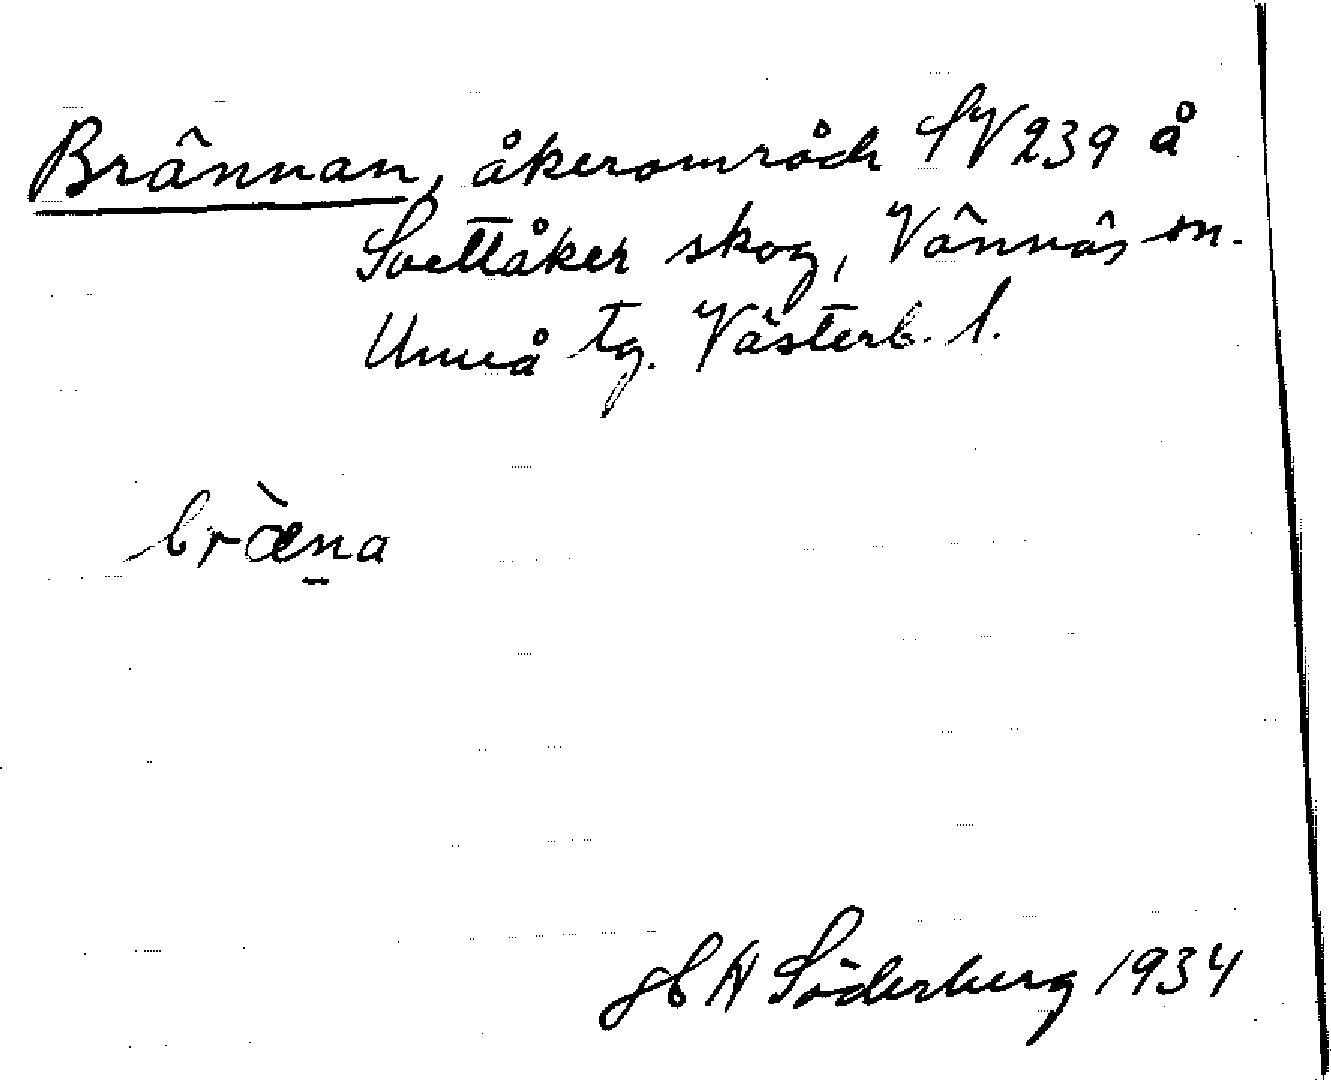 Brännan, åkerområde SV 239 å
Svettåker skog, Vännäs sn.
Umeå tg. Västerb. l.
bræ̀n̠a
H Söderberg 1934